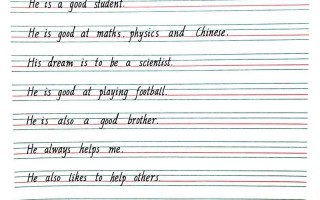 He is a good student.
He is good at maths, physics and Chinese.
His dream is to be a scientist.
He is good at playing football.
He is also a good brother.
He always helps me.
He also likes to help others.